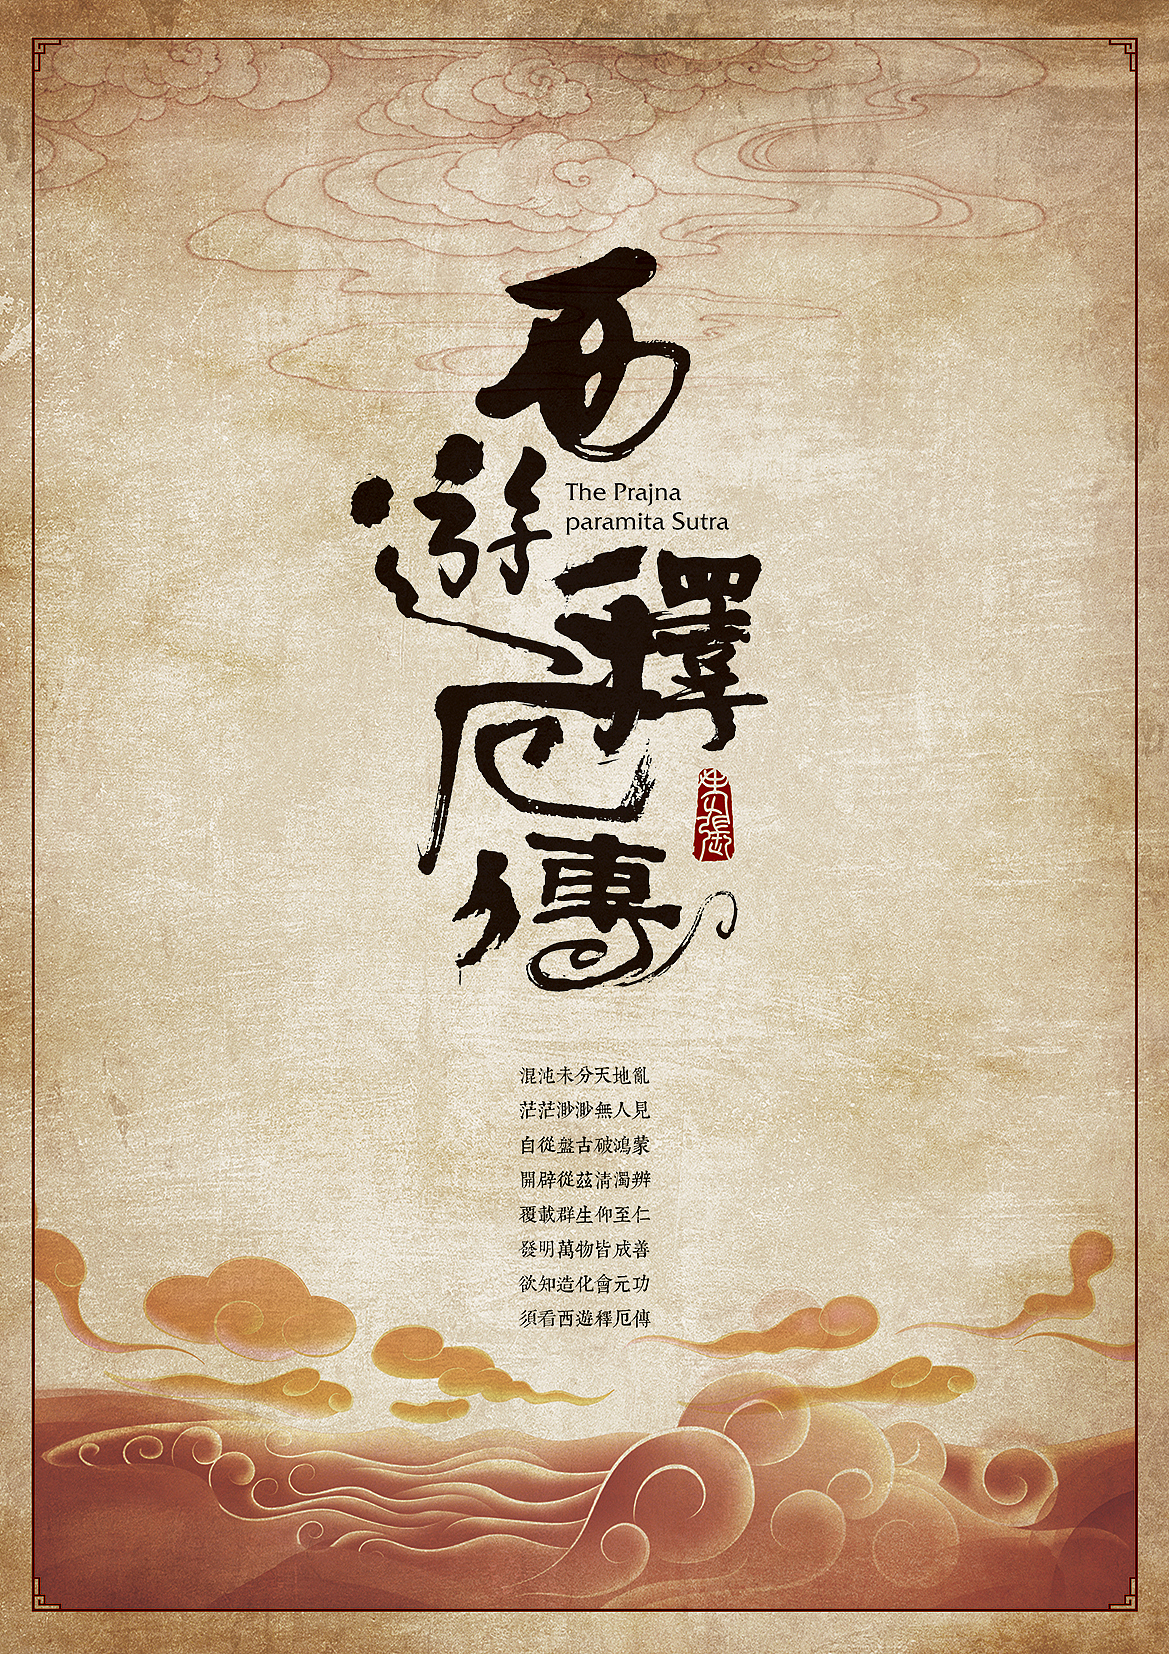 西遊釋厄傳
The Prajna
paramita Sutra
混沌未分天地亂
茫茫渺渺無人見
自從盤古破鴻蒙
開辟從茲清濁辨
覆載群生仰至仁
發明萬物皆成善
欲知造化會元功
須看西遊釋厄傳